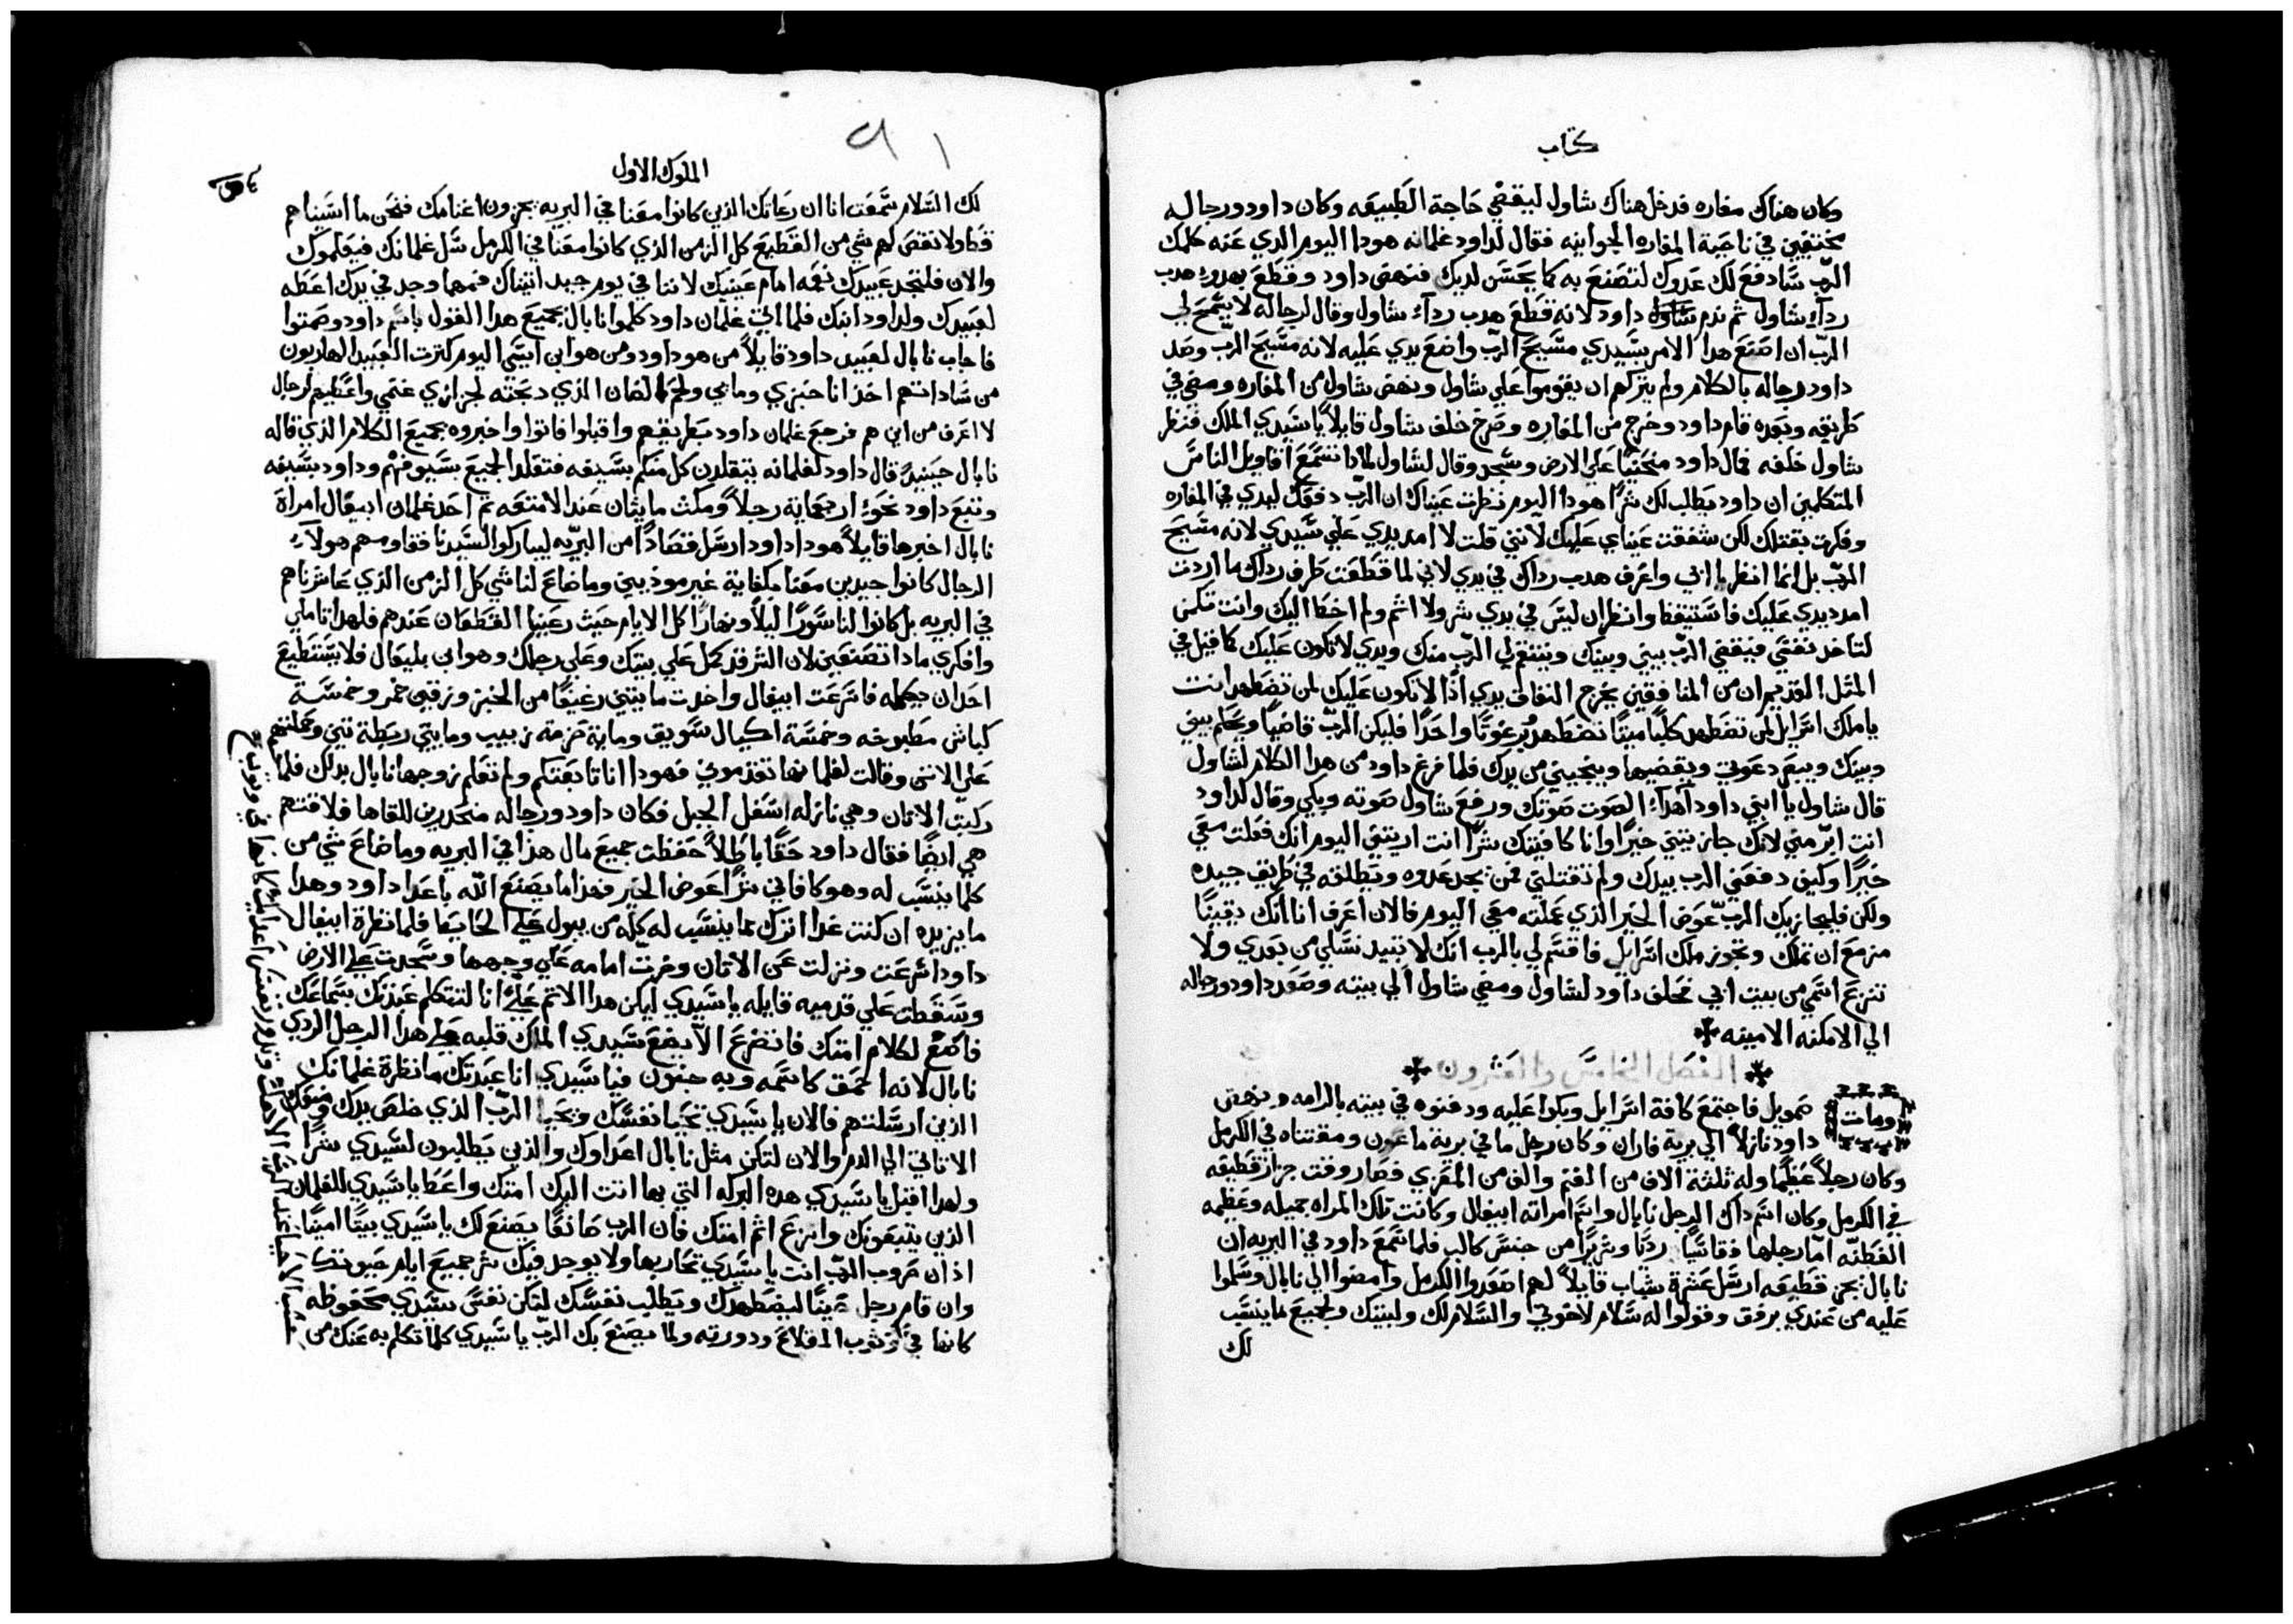 كتاب
وكان هناك مغاره فدخل هناك شاول ليقضي حاجة الطبيعه وكان داود ورجاله
مختفيين في ناحية المغاره الجوانيه فقال لداود غلمانه هودا اليوم الدي عنه كلمك
الرب سادفع لك عدوك لتصنع به كما يحسن لديك فنهض داود وقطع بهدوء هدب
رداء شاول ثم ندم داود لانه قطع هدب رداء شاول وقال لرجاله لا يسمح لي
الرب ان اصنع هدا الامر بسيدي مسيح الرب واضع يدي عليه لانه مسيح الرب وصد
داود رجاله بالكلام ولم يتركهم ان يقوموا علي شاول ونهض شاول من المغاره ومضي في
طريقه وبعده قام داود وخرج من المغاره وصرخ خلف شاول قايلاً يا سيدي الملك فنظر
شاول خلفه فمال داود منحنياً علي الارض وسجد وقال لشاول لمادا تستمع اقاويل الناس
المتكلمين ان داود يطلب لك شراً هودا اليوم نظرت عيناك ان الرب دفعك ليدي في المغاره
وفكرت بقتلك لكن شفقت عيناي عليك لانني قلت لا امد يدي علي سيدي لانه مسيح
الرب بل انما انظر يا ابي واعرف هدب رداك في يدي لاني لما قطعت طرف رداك ما اردت
امد يدي عليك فاستيقظ وانظر ان ليس في يدي شر ولا اثم ولم اخطا اليك وانت تكمن
لتاخد نفسي فيقضي الرب بيني وبينك وينتقم لي الرب منك ويدي لا تكون عليك كما قيل في
المثل القديم ان من المنافقين يخرج النفاق يدي اذاً لا تكون عليك لمن تضطهد انت
يا ملك اسرايل لمن تضطهد كلباً ميتاً تضطهد برغوتاً واحداً فليكن الرب قاضياً ويحكم بيني
وبينك ويبصر دعوتي ويقضيها وينجيني من يدك فلما فرغ داود من هدا الكلام لشاول
قال شاول يا ابني داود أهداء الصوت صوتك ورفع شاول صوته وبكي وقال لداود
انت ابر مني لانك جازيتني خيراً وانا كافيتك شراً انت اريتني اليوم انك فعلت معي
خيراً وكيف دفعني الرب بيدك ولم تقتلني فمن يجد عدوه ويطلقه في طريق جيده
ولكن فليجازيك الرب عوض الخير الذي عملته معي اليوم فالان اعرف انا انك يقيناً
مزمع ان تملك وتحوز ملك اسرايل فاقسم لي بالرب انك لا تبيد نسلي من بعدي ولا
تنزع اسمي من بيت ابي فحلف داود لشاول ومضي شاول الي بيته وصعد داود ورجاله
الي الامكنه الامينه
الفصل الخامس والعشرون
ومات صمويل فاجتمع كافة اسرايل وبكوا عليه ودفنوه في بيته بالرامه ونهض
داود نازلاً الي برية فاران وكان رجل ما في برية ماعون ومقتناه في الكرمل
وكان رجلاً عظيماً وله ثلثة الاف من الغنم والف من المعزي فصار وقت جزاز قطيعه
في الكرمل وكان اسم داك الرجل نابال واسم امراته ابيغال وكانت تلك المراه جميله وعظيمه
الفطنه اما رجلها فقاسياً ردياً وشريراً من جنس كالب فلما سمع داود في البريه ان
نابال يجز قطيعه ارسل عشرة شباب قايلاً لهم اصعدوا الكرمل وامضوا الي نابال وسلموا
عليه من عندي برفق وقولوا له سلام لاخوتي والسلام لك ولبيتك ولجميع ما ينسب
لك
الملوك الاول
لك السلام سمعت انا ان رعاتك الذين كانوا معنا في البريه يجزون اغنامك فنحن ما اسيناهم
قط ولا نقص لهم شي من القطيع كل الزمن الذي كانوا معنا في الكرمل سل غلمانك فيعلموك
والان فلتجد عبيدك نعمه امام عينيك لاننا في يوم جيد اتيناك فمهما وجد في يدك اعطه
لعبيدك ولداود ابنك فلما اتي غلمان داود كلموا نابال بجميع هدا القول باسم داود وصمتوا
فاجاب نابال لعبيد داود قايلاً من هو داود ومن هو ابن ايسي اليوم كترت العبيد الهاربون
من ساداتهم اخذ انا خبزي وماي ولحم الضان الذي دبحته لجزازي غنمي واعطيهم لرجال
لا اعرف من اين هم فرجع غلمان داود بطريقهم واقبلوا فاتوا واخبروه بجميع الكلام الذي قاله
نابال حينيدٍ قال داود لغلمانه يتقلدن كل منكم بسيفه فتقلد الجميع بسيوفهم وداود بسيفه
وتبع داود نحو اربعماية رجلاً ومكث مايتان عند الامتعه ثم احد غلمان ابيغال امراة
نابال اخبرها قايلاً هودا داود ارسل قصاداً من البريه ليباركوا لسيدنا فقاومهم هولاء
الرجال كانوا جيدين معنا بكفاية غير موذيين وما ضاع لنا شي كل الزمن الذي عاشرناهم
في البريه بل كانوا لنا سوراً ليلاً ونهاراً كل الايام حيث رعينا القطعان عندهم فلهدا تاملي
وافكري مادا تصنعين لان الشر قد كمل علي بيتك وعلي رجلك وهو ابن بليعال فلا يستطيع
احد ان يكلمه فاسرعت ابيغال واخدت مايتي رغيفاً من الخبز وزقين خمر وخمسة
كباش مطبوخه وخمسة اكيال سويق وماية حزمة زبيب ومايتي ربطة تين وحملتهم
علي الاتن وقالت لغلمانها تقدموني فهودا انا تابعتكم ولم تعلم زوجها نابال بدلك فلما
ركبت الاتان وهي نازله اسفل الجبل فكان داود ورجاله منحدرين للقاها فلاقتهم
هي ايضاً فقال داود حقاً باطلاً حفظت جميع مال هذا في البريه وما ضاع شي من
كلما ينسب له وهو كافاني شراً عوض الخير فهذا ما يصنع الله باعدا داود وهدا
ما يزيده ان كنت غدا اترك مما ينسب له كله من يبول علي الحايط فلما نظرة ابيغال
داود اسرعت ونزلت عن الاتان وخرت امامه علي وجهها وسجدت علي الارض
وسقطت علي قدميه قايله يا سيدي ليكن هدا الاتم علي انا لتتكلم عبدتك بسماعك
فاسمع لكلام امتك فاتضرع الا يضع سيدي الملك قلبه علي هدا الرجل الردي
نابال لانه احمق كاسمه وبه جنون فيا سيدي انا عبدتك ما نظرة غلمانك
الذين ارسلتهم فالان يا سيدي تحيا نفسك ويحيا الرب الذي خلص يدك ومنعك
الا تاتي الي الدم والان لتكن مثل نابال اعداوك والذين يطلبون لسيدي شراً
ولهدا اقبل يا سيدي هده البركه التي بها اتت اليك امتك واعط يا سيدي للغلمان
الذين يتبعونك وانزع اثم امتك فان الرب صانعاً يصنع لك يا سيدي بيتاً اميناً
اذ ان حروب الرب انت يا سيدي تحاربها ولا يوجد فيك شر جميع ايام حيوتك
وان قام رجل حيناً ليضطهدك ويطلب نفسك لتكن نفس سيدي محفوظه
كانها في وثوب المقلاع ودورته ولما يصنع بك الرب يا سيدي كلما تكلم به عنك من